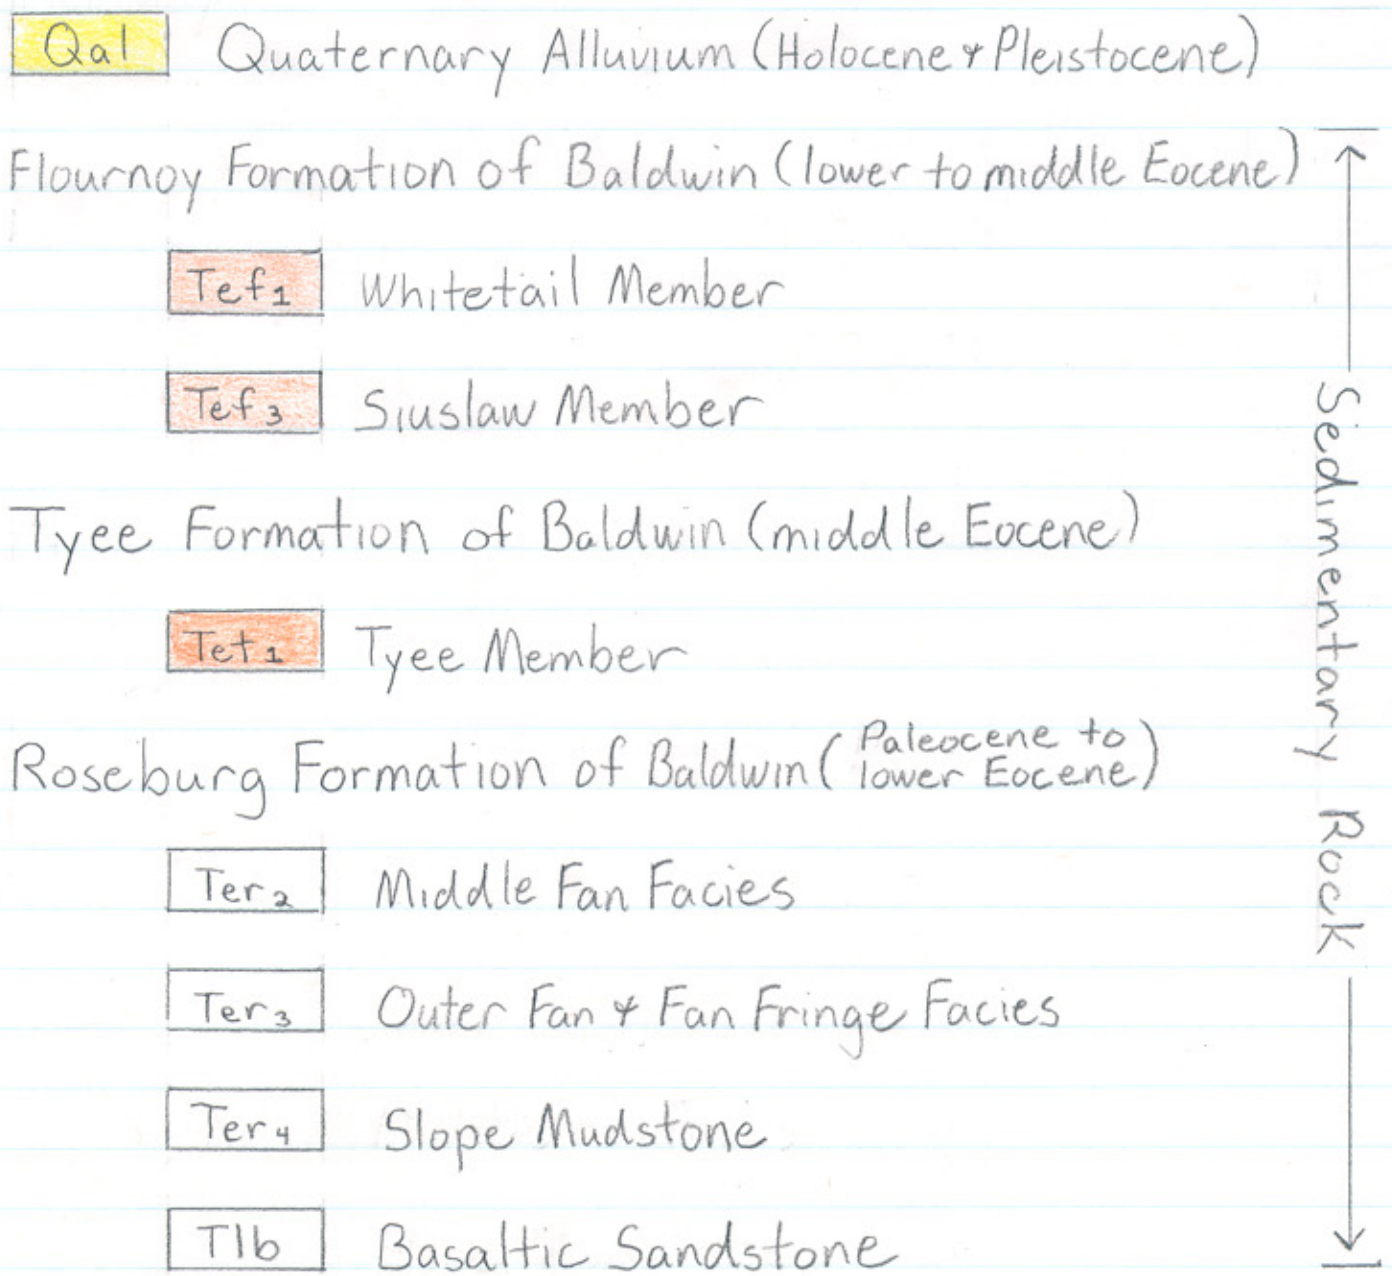 Qal Quaternary Alluvium (Holocene & Pleistocene)
Flournoy Formation of Baldwin (lower to middle Eocene)
Tef1 Whitetail Member
Tef3 Siuslaw Member
Tyee Formation of Baldwin (middle Eocene)
Tet1 Tyee Member
Roseburg Formation of Baldwin (Paleocene to
lower Eocene)
Ter2 Middle Fan Facies
Ter3 Outer Fan & Fan Fringe Facies
Ter4 Slope Mudstone
Tlb Basaltic Sandstone
Sedimentary Rock